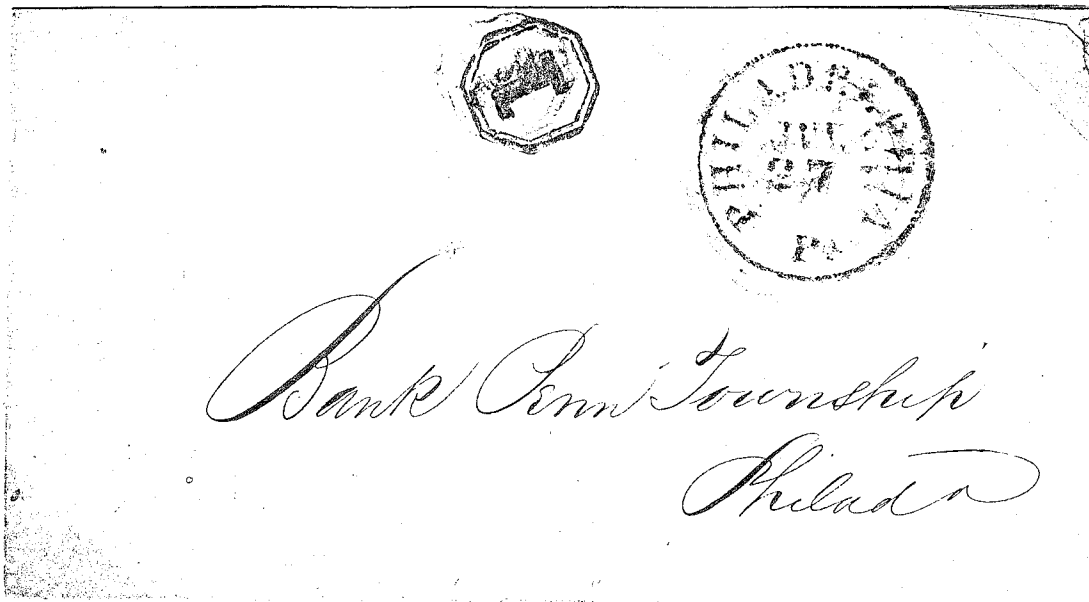 1
PHILADELPHIA
JUL
27
Pa
Bank Penn Township
Philada